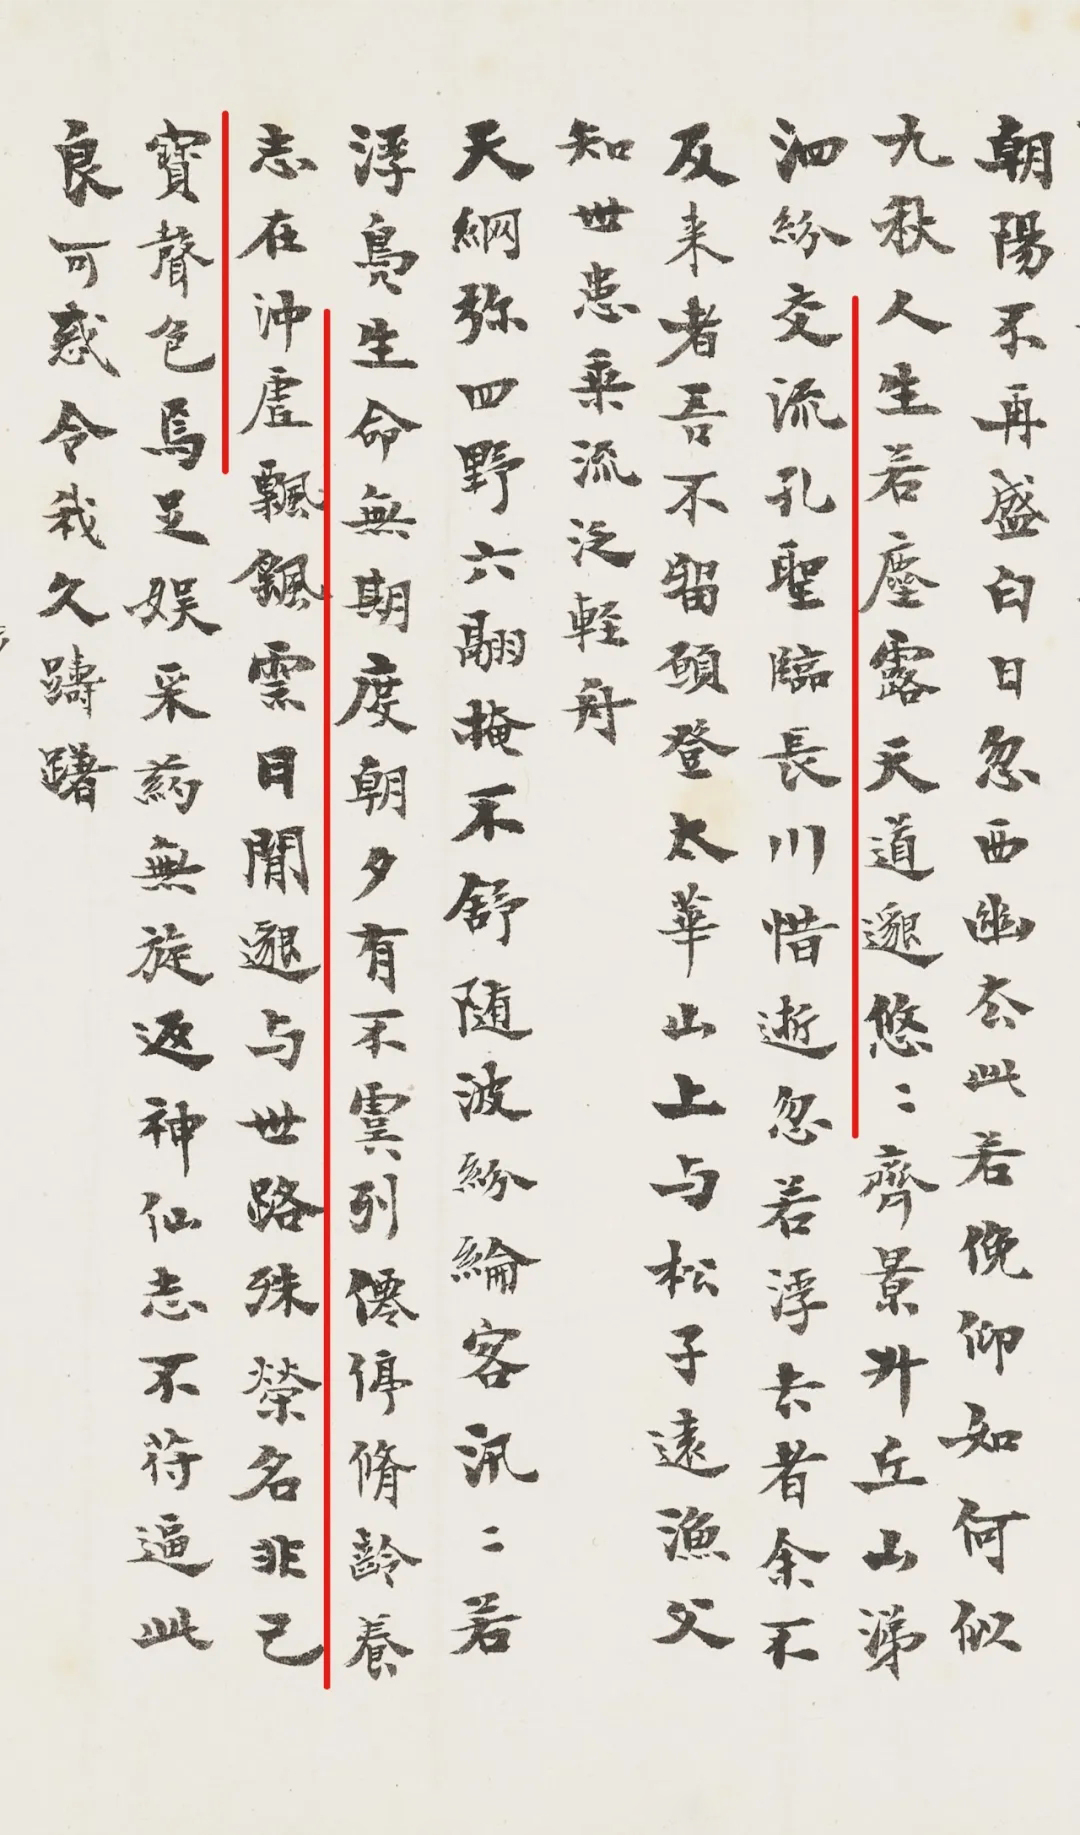 朝陽不再盛白日忽西幽去此若俛仰如何似
九秋人生若塵露天道邈悠〻齊景升丘山涕
泗紛交流孔聖臨長川惜逝忽若浮去者余不
及来者吾不留願登太華山上与松子遠漁父
知世患乗流泛軽舟
天網弥四野六翮掩不舒随波紛綸客汎〻若
浮鳧生命無期度朝夕有不虞列僊停脩齡養
志在沖虚飄飖雲日間邈与世路殊榮名非己
寶聲色焉足娱采药無旋返神仙志不符逼此
良可惑令我久躊躇